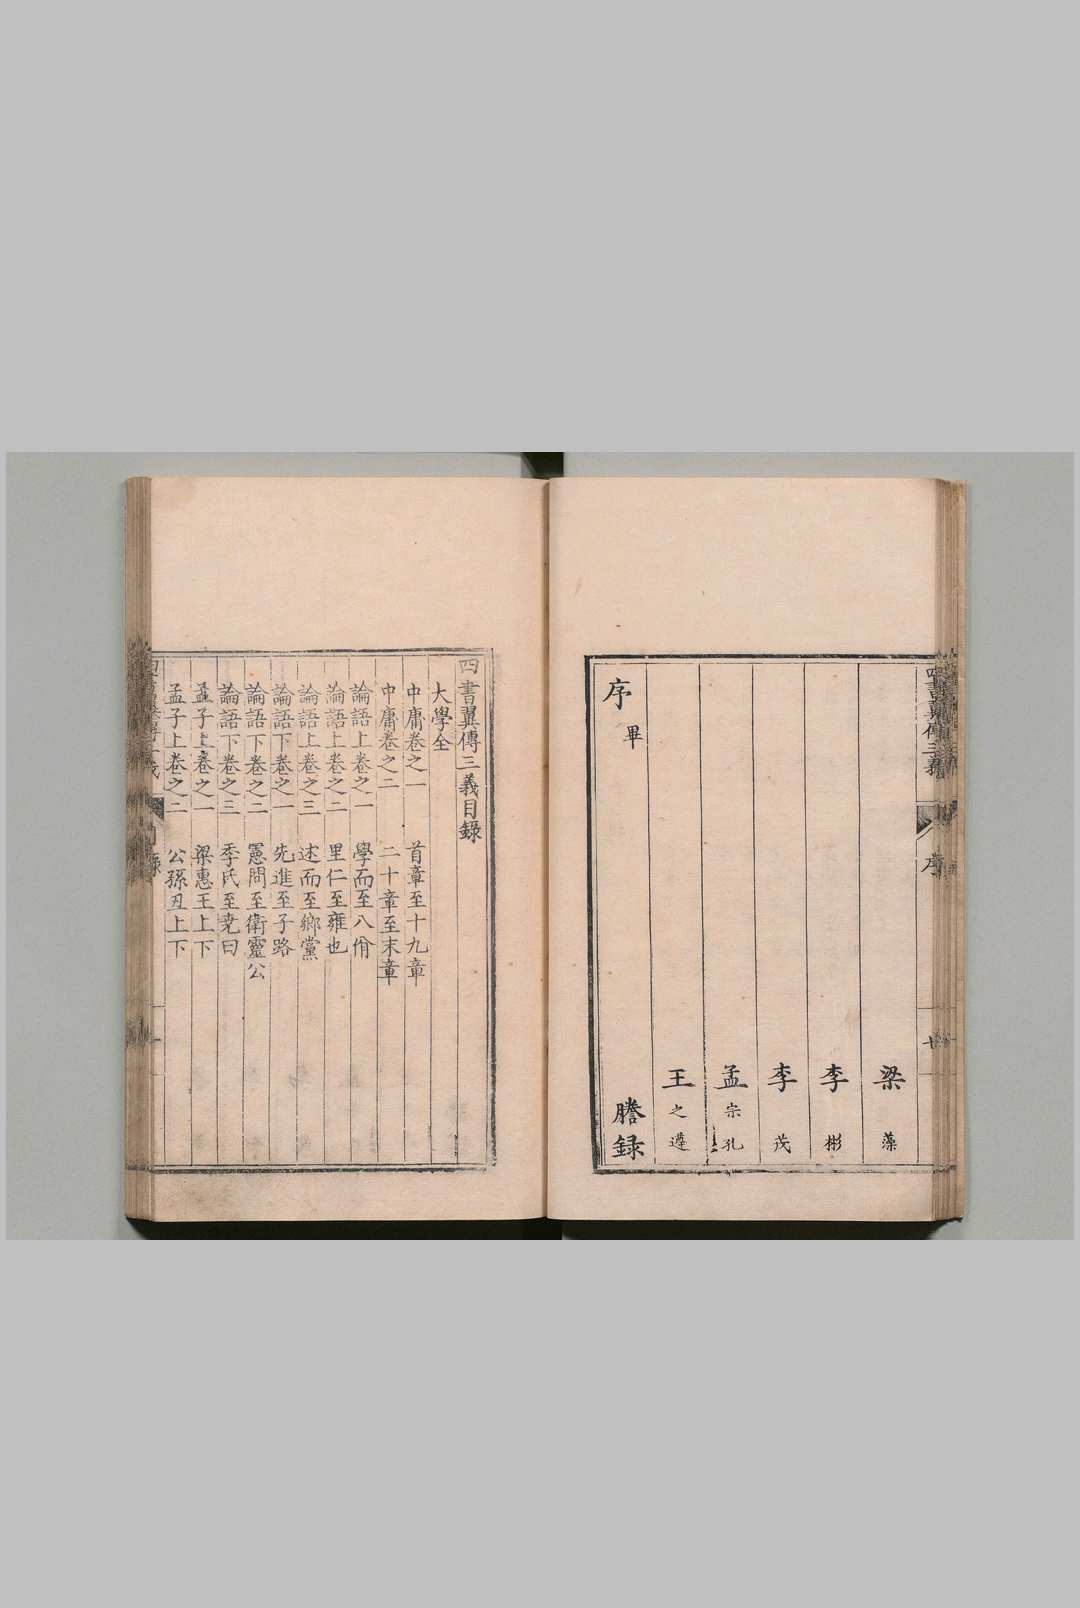 四書翼傳三義
序
梁藻
李彬
李茂
孟宗孔
王之遴
謄録
序畢
四書翼傳三義目錄
大學全
中庸卷之一 首章至十九章
中庸卷之二 二十章至末章
論語上卷之一 學而至八佾
論語上卷之二 里仁至雍也
論語上卷之三 述而至鄉黨
論語下卷之一 先進至子路
論語下卷之二 憲問至衛靈公
論語下卷之三 季氏至堯曰
孟子上卷之一 梁惠王上下
孟子上卷之二 公孫丑上下